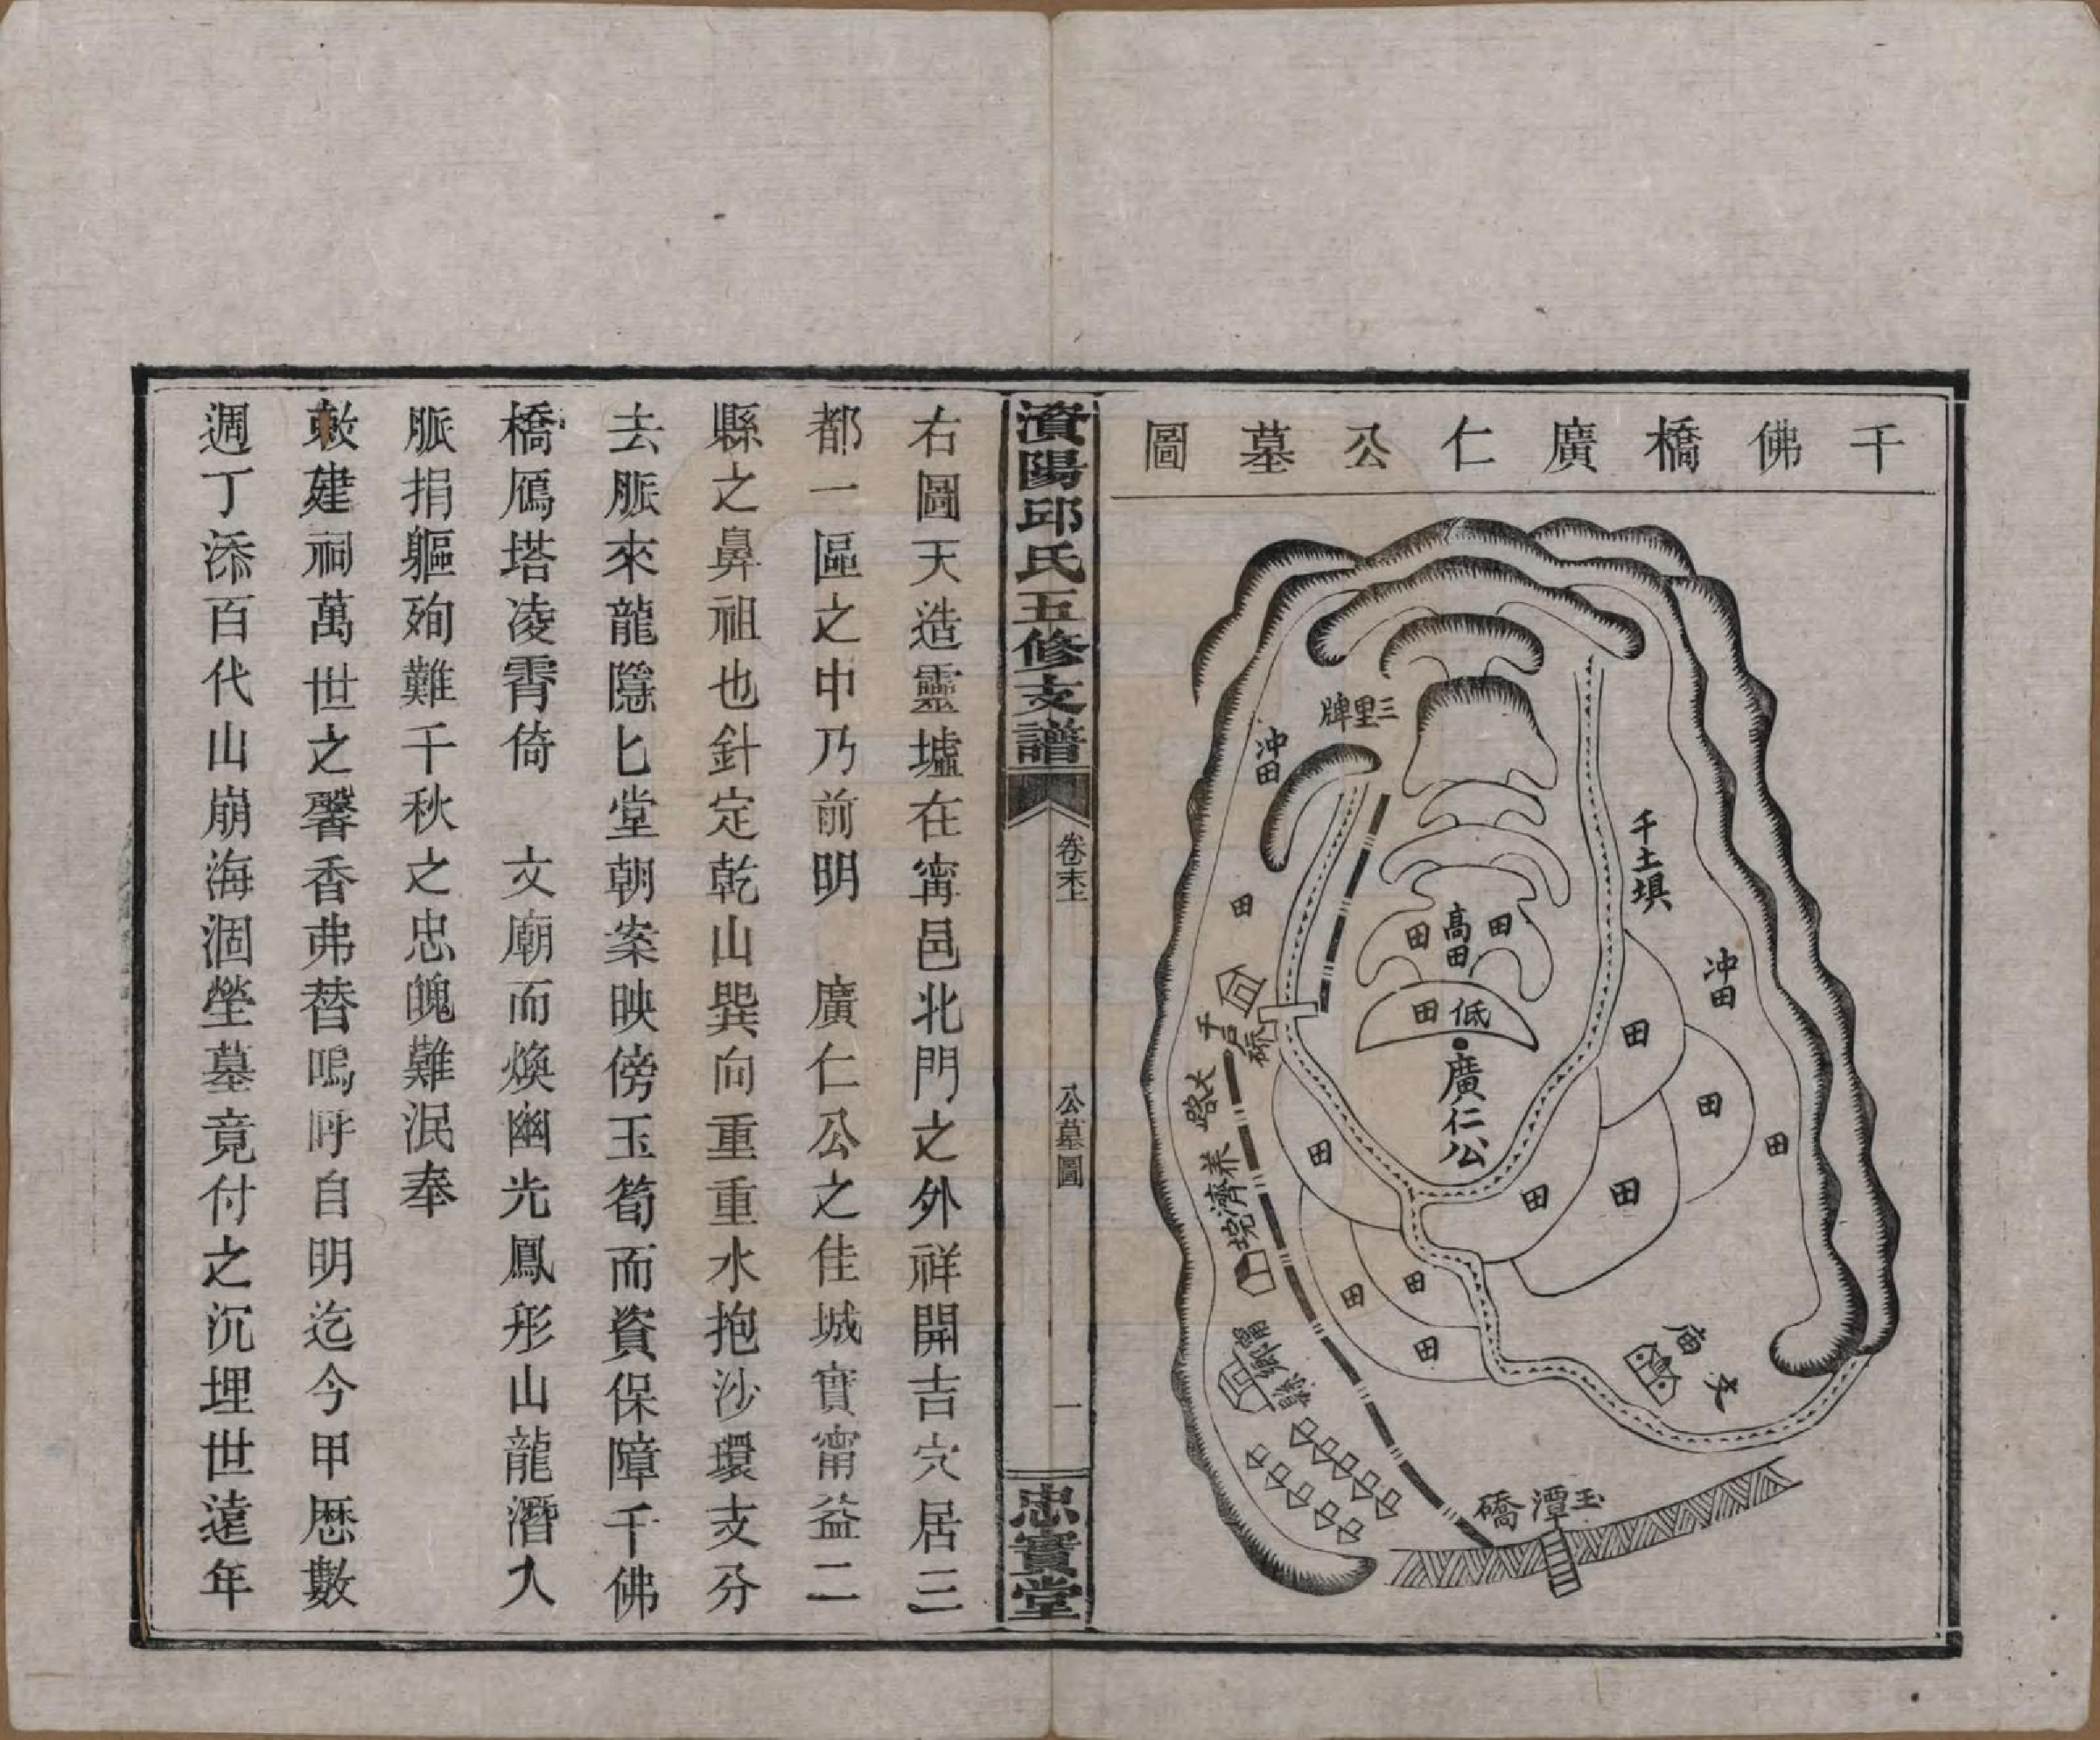 千佛橋廣仁公墓圖
三里牌
沖田
千土埧
沖田
田
田
高田
田
田低
廣仁公
千石橋
大路
養濟院
甯鄉縣
田
田
田
田
田
田
田
田
田
文廟
玉潭橋
資陽邱氏五修支譜
卷末上
公墓圖
一
忠實堂
右圖天造靈墟在甯邑北門之外祥開吉穴居三
都一區之中乃前明 廣仁公之佳城實甯益二
縣之鼻祖也針定乾山巽向重重水抱沙環支分
去脈來龍隱匕堂朝案映傍玉筍而資保障千佛
橋鴈塔凌霄倚 文廟而煥幽光鳳形山龍潛大
脈捐軀殉難千秋之忠魄難泯奉
敕建祠萬世之馨香弗替嗚呼自明迄今甲歷數
週丁添百代山崩海涸塋墓竟付之沉埋世遠年